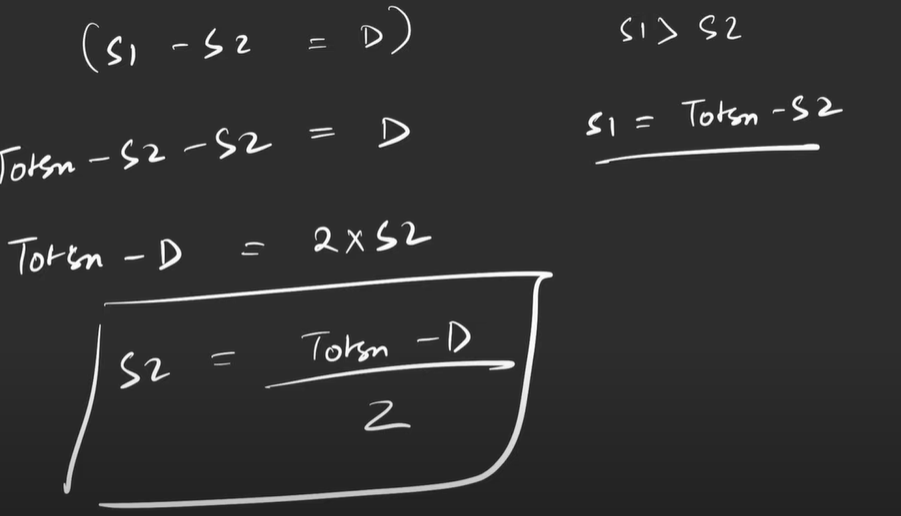 (S1 - S2 = D) S1 > S2
S1 = Totsm - S2
Totsm - S2 - S2 = D
Totsm - D = 2 x S2
S2 = Totsm - D
2